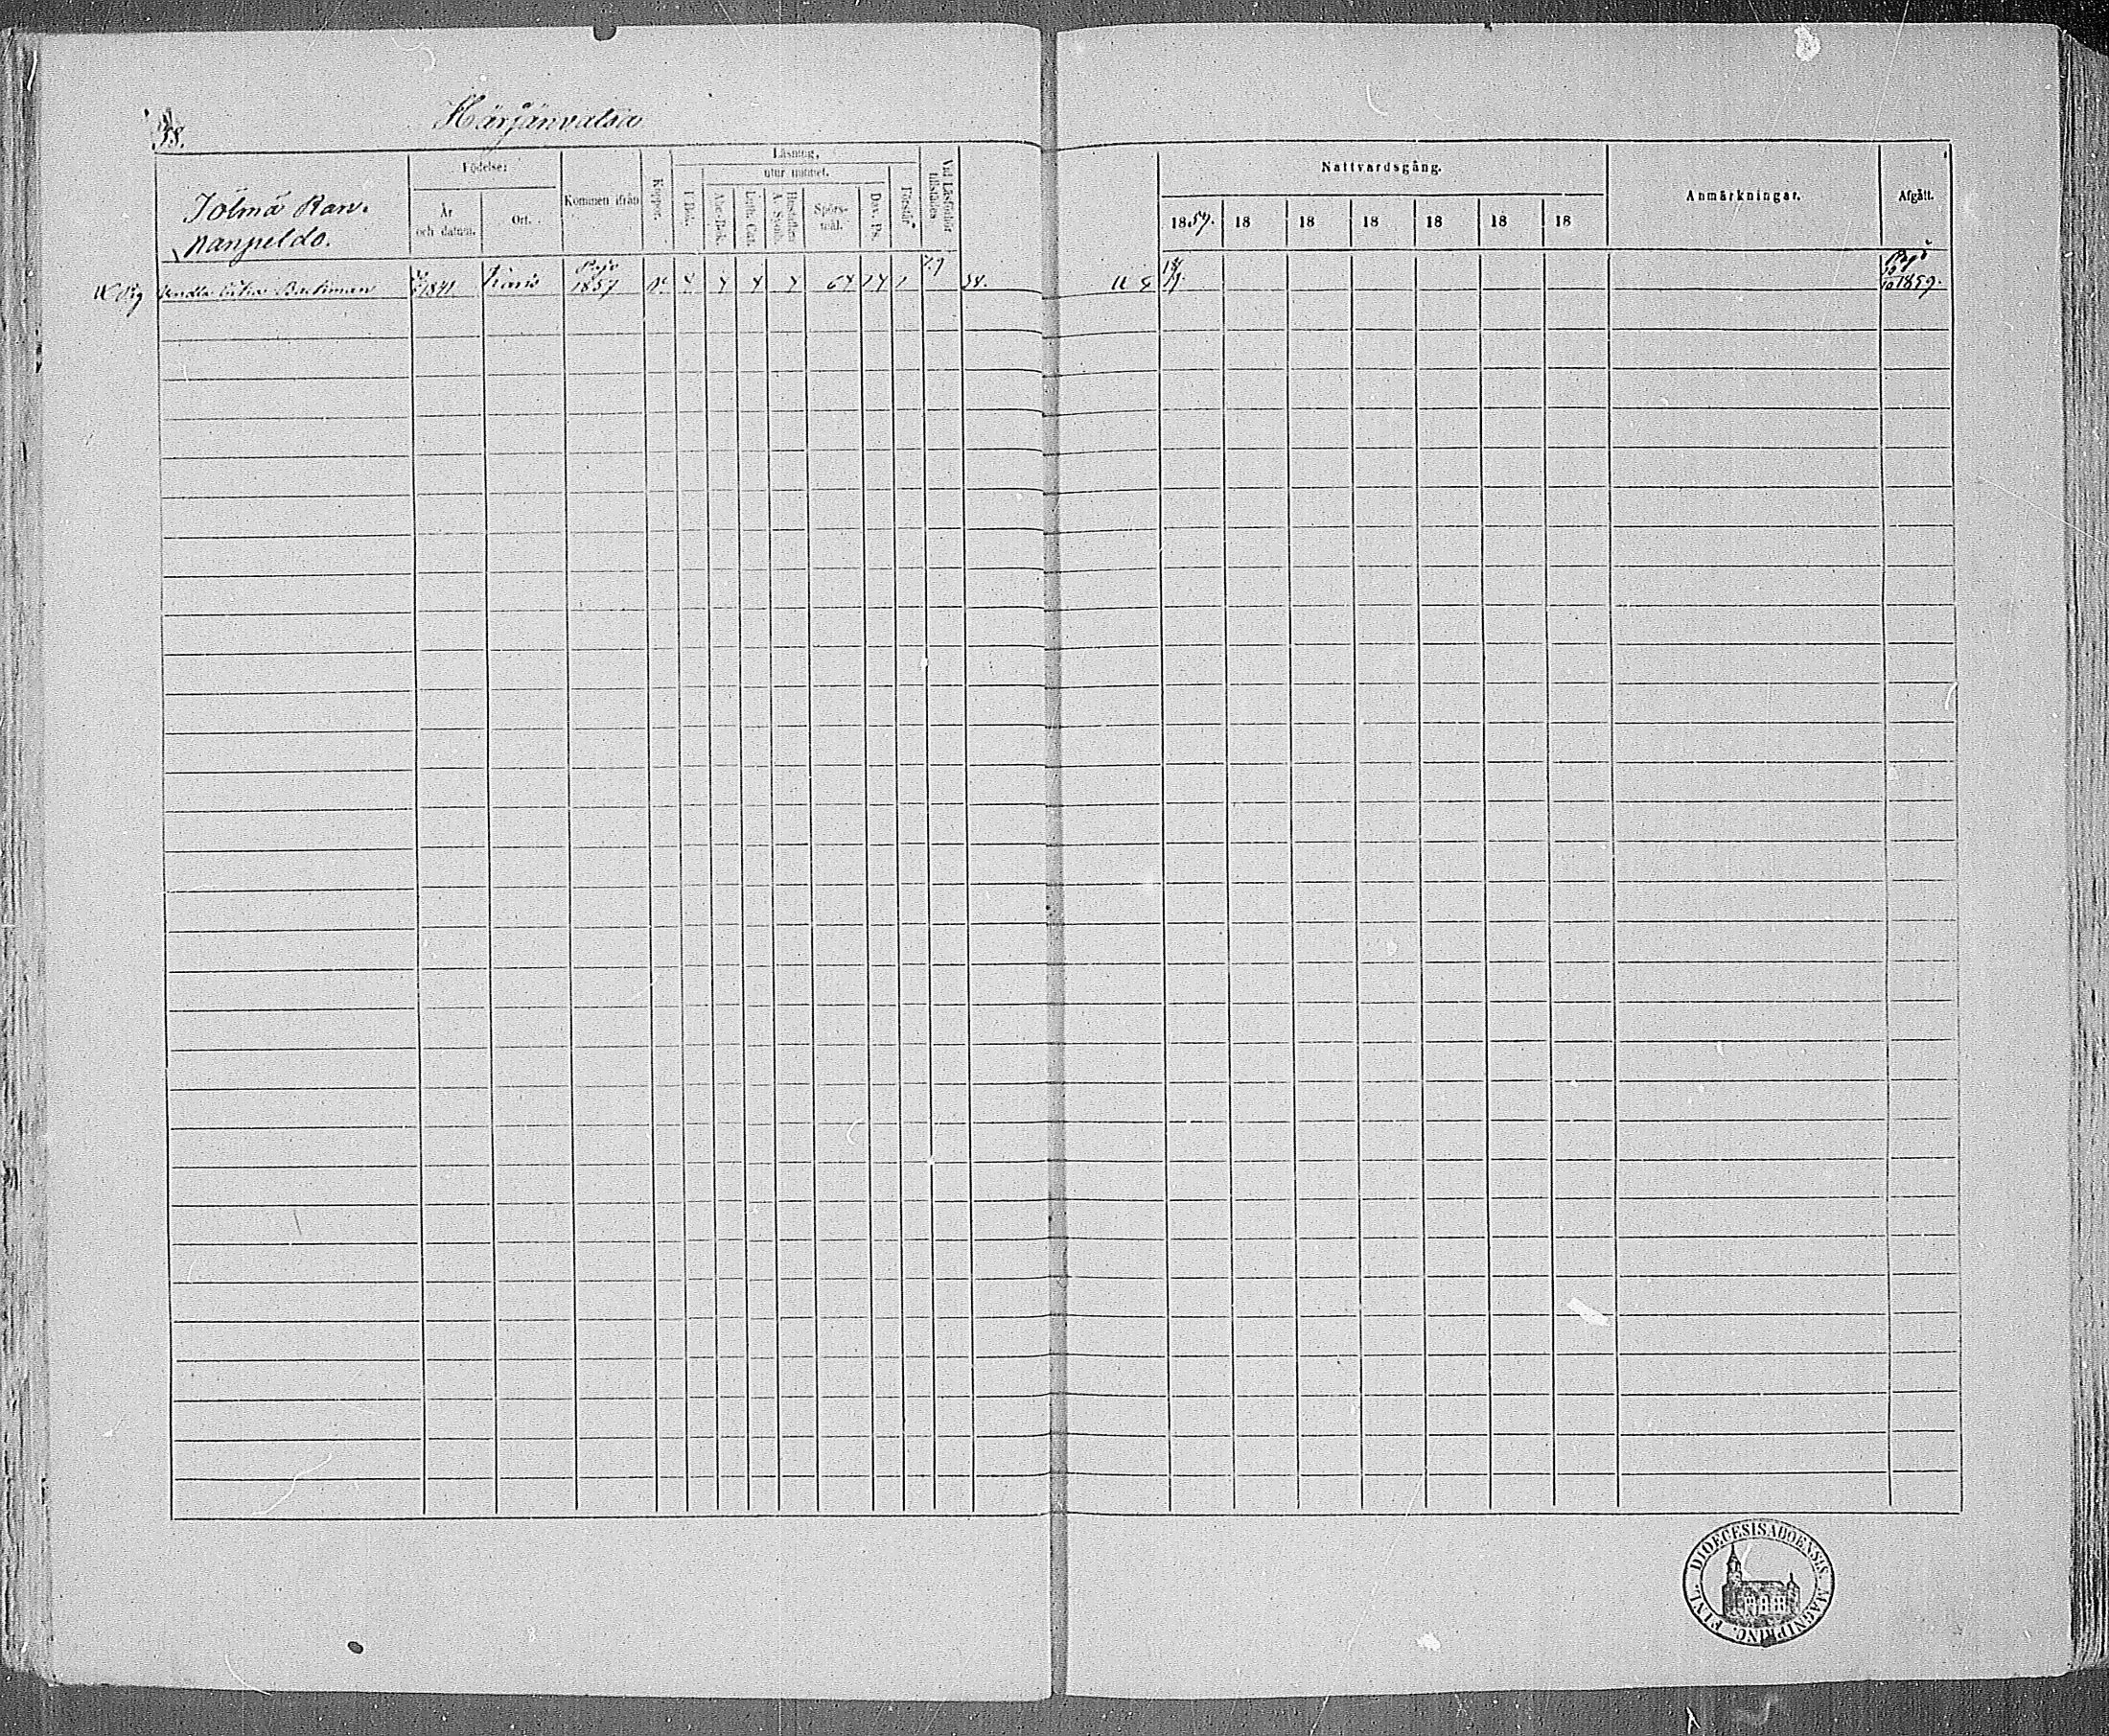 58.
Härjänvalsa
Jölmä Ran-
kanpeldo.
Födelse:
År
och datum.
Ort.
Kommen ifrån
Koppor.
Läsning,
utur minnet.
I Bok.
Abc-Bok.
Luth. Cat.
Hustaflan
A. Symb.
Spörs-
mål.
Dav. Ps.
Förstår
Vid Läsförhör
tillstädes
Nattvardsgång.
1859.
18
18
18
18
18
18
Anmärkningar.
Afgått.
Backman
1841
Pojo
1857
Pojo
1859.
DIOECESIS ABOENSIS. MAGNI PRINC. FINL.